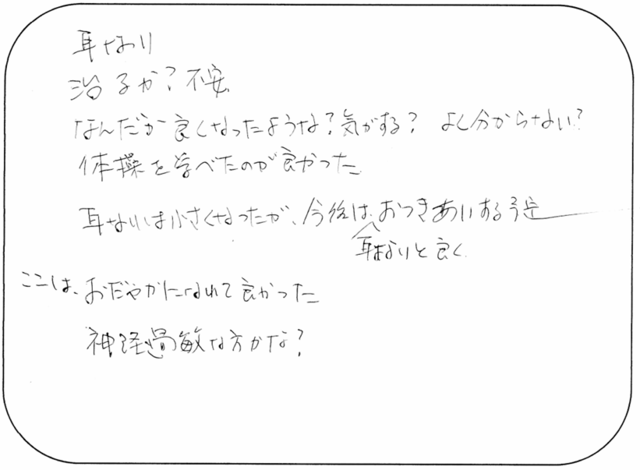 耳なり
治るか？不安
なんだか良くなったような？気がする？ よく分からない？
体操を学べたのが良かった
耳なりは小さくなったが、今後は、おつきあいする予定
耳なりと良く
ここは、おだやかになれて良かった
神経過敏な方かな？